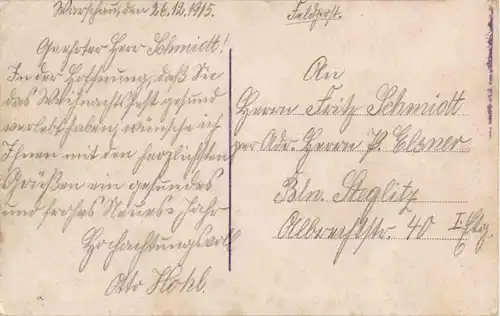 Warschau, den 26.12.1915.
Feldpost.
Geehrter Herr Schmidt!
In der Hoffnung, daß Sie
das Weihnachtsfest gesund
verlebt haben, wünsche ich
Ihnen mit den herzlichsten
Grüßen ein gesundes
und frohes Neues-Jahr
Hochachtungsvoll
Otto Hohl.
An
Herrn Fritz Schmidt
per Adr. Herrn P. Elsner
Bln. Steglitz
Albrechtstr. 40 I. Etg.